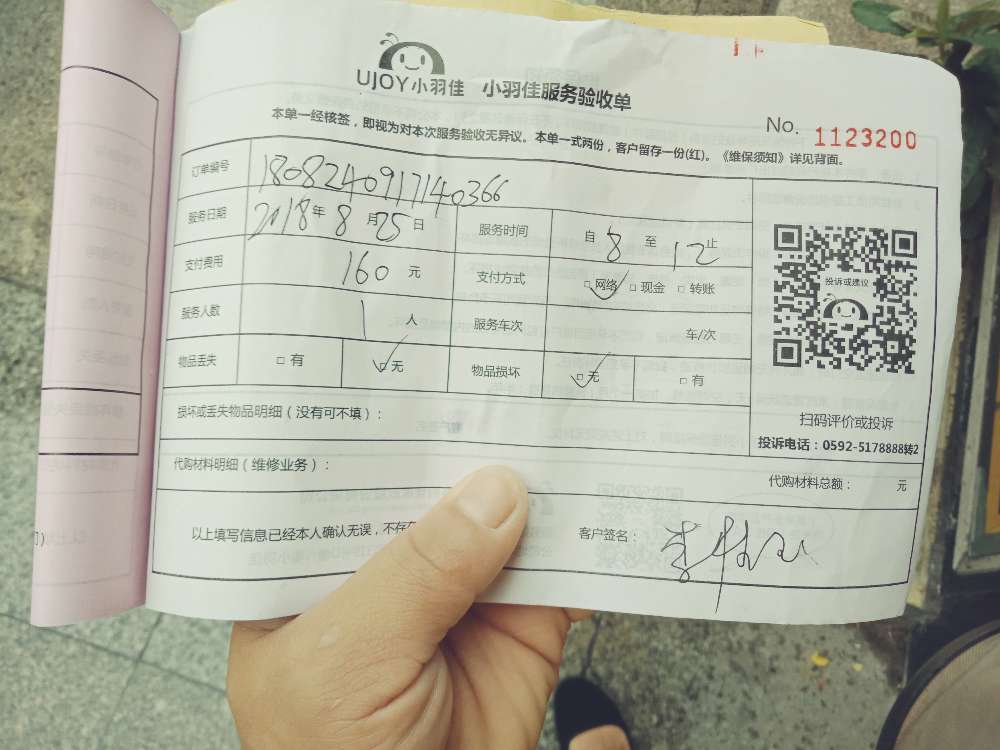 UJOY小羽佳 小羽佳服务验收单
No. 1123200
本单一经核签，即视为对本次服务验收无异议。本单一式两份，客户留存一份(红)。《维保须知》详见背面。
订单编号 1808240917140366
服务日期 2018年8月25日 服务时间 自8至12止
支付费用 160元 支付方式 □网络 □现金 □转账
投诉或建议
服务人数 1人 服务车次 车/次
物品丢失 □有 □无 物品损坏 □无 □有
损坏或丢失物品明细（没有可不填）：
扫码评价或投诉
投诉电话：0592-5178888转2
代购材料明细（维修业务）： 代购材料总额： 元
以上填写信息已经本人确认无误，不存 客户签名：